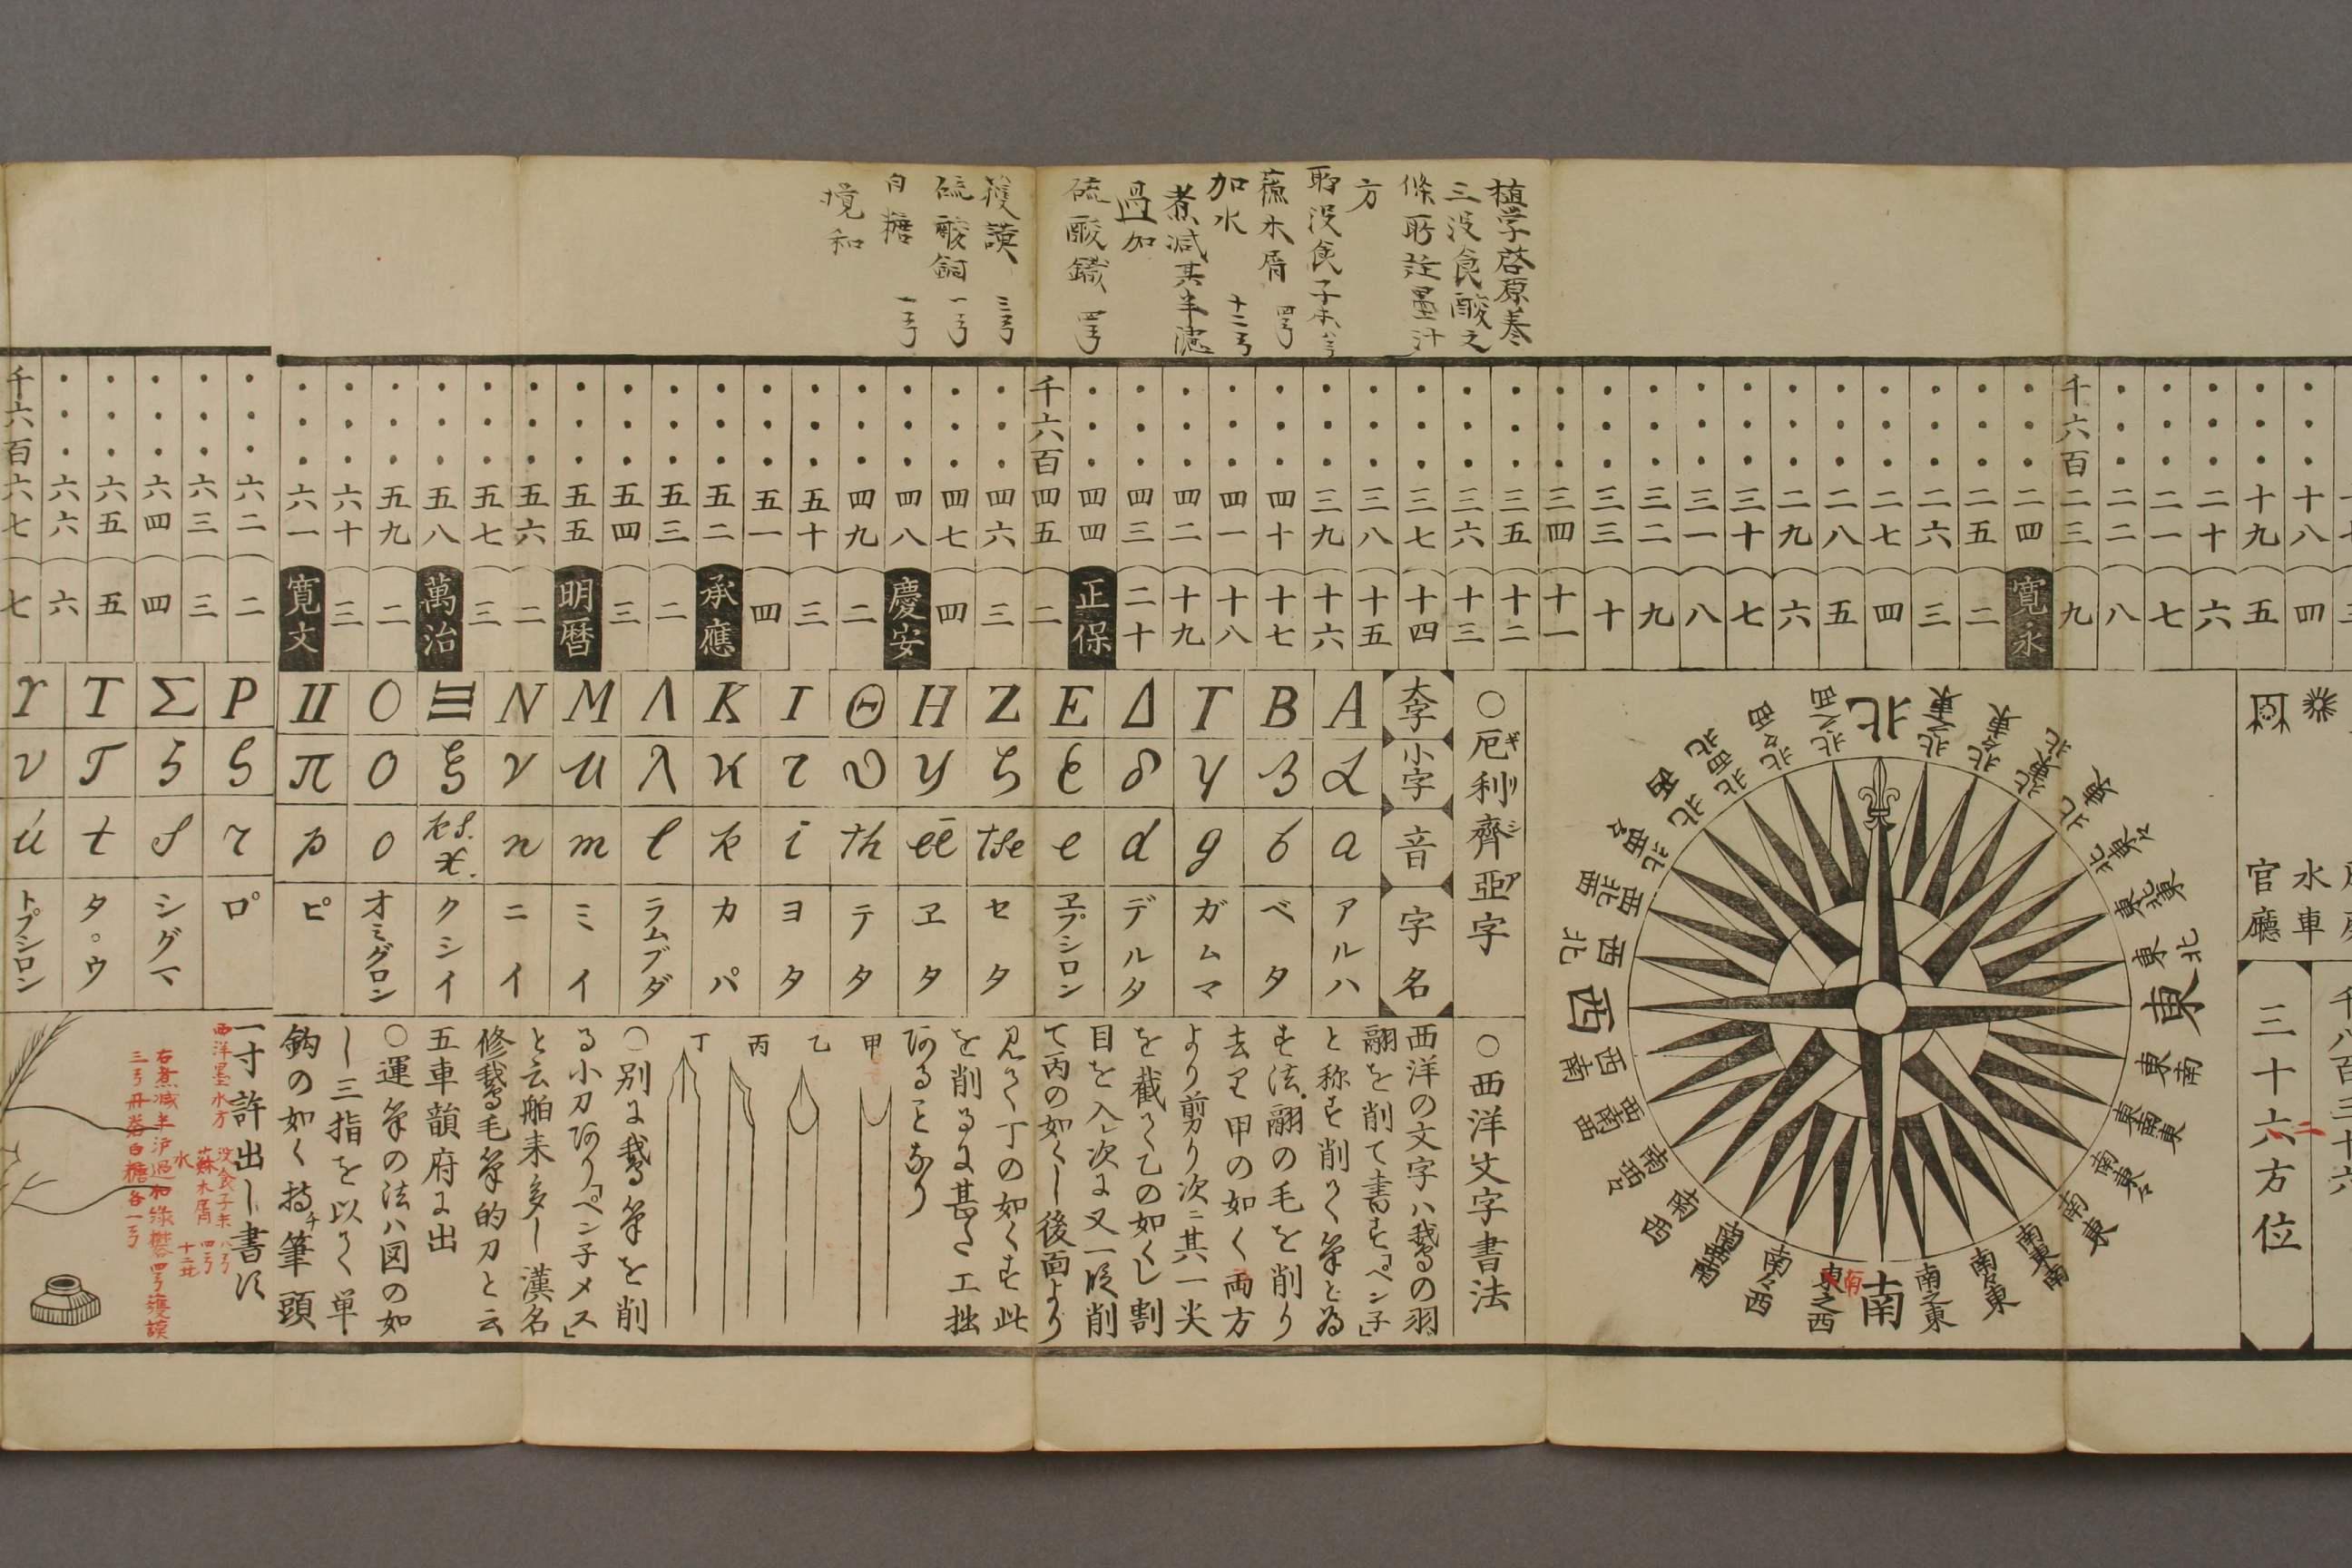 植学啓原巻
三没食酸之
條所註墨汁
方
没食子末八弓
蘇木屑 四弓
加水 十二弓
煮減其半濾
過加
硫酸鐵 四弓
護謨 三弓
硫酸銅 一弓
白糖 一弓
攪和
・・・十八 四
・・・十九 五
・・・二十 六
・・・二一 七
・・・二二 八
千六百二三 九
・・・二四 寛永
・・・二五 二
・・・二六 三
・・・二七 四
・・・二八 五
・・・二九 六
・・・三十 七
・・・三一 八
・・・三二 九
・・・三三 十
・・・三四 十一
・・・三五 十二
・・・三六 十三
・・・三七 十四
・・・三八 十五
・・・三九 十六
・・・四十 十七
・・・四一 十八
・・・四二 十九
・・・四三 二十
・・・四四 正保
千六百四五 二
・・・四六 三
・・・四七 四
・・・四八 慶安
・・・四九 二
・・・五十 三
・・・五一 四
・・・五二 承應
・・・五三 二
・・・五四 三
・・・五五 明暦
・・・五六 二
・・・五七 三
・・・五八 萬治
・・・五九 二
・・・六十 三
・・・六一 寛文
・・・六二 二
・・・六三 三
・・・六四 四
・・・六五 五
・・・六六 六
千六百六七 七
水車
官廳
三十六方位
二
北
北之東
北々東
北東北
北東
北東々
東北東
東北
東
東南
東南東
南東々
南東
南東南
南々東
南之東
南
南
東之西
南々西
南西南
南西
南西々
西南西
西南
西
西北
西北西
北西々
北西
北西北
北々西
北之西
○厄利齊亞字
ギリシア
大字 小字 音 字名
Α α a アルハ
Β β b ベタ
Γ γ g ガムマ
Δ δ d デルタ
Ε ε e ヱプシロン
Ζ ζ tse セタ
Η η eē ヱタ
Θ θ th テタ
Ι ι i ヨタ
Κ κ k カパ
Λ λ l ラムブダ
Μ μ m ミイ
Ν ν n ニイ
Ξ ξ ks. x. クシイ
Ο ο o オミグロン
Π π p ピ
Ρ ς r ロ゜
Σ ς s シグマ
Τ τ t タ。ウ
Υ υ ú トプシロン
○西洋文字書法
西洋の文字ハ鵞の羽
翮を削て書す「ペン子」
と称す削りて筆と為
す法翮の毛を削り
去り甲の如く両方
より剪り次ニ其一尖
を截りて乙の如くし割
目を入レ次に又一ト削
て丙の如くし後面より
見て丁の如くす此
を削るに甚だ工拙
あることあり
甲
乙
丙
丁
○別に鵞筆を削
る小刀あり「ペン子メス」
と云舶来多し漢名
修鵞毛筆的刀と云
五車韻府に出
○運筆の法ハ図の如
し三指を以て単
鈎の如く持チ筆頭
一寸許出し書す
西洋墨水方 没食子末 八弓
蘇木屑 四弓
水 十二
右煮減半沪過加緑礬四弓護謨
三弓丹礬白糖各一弓